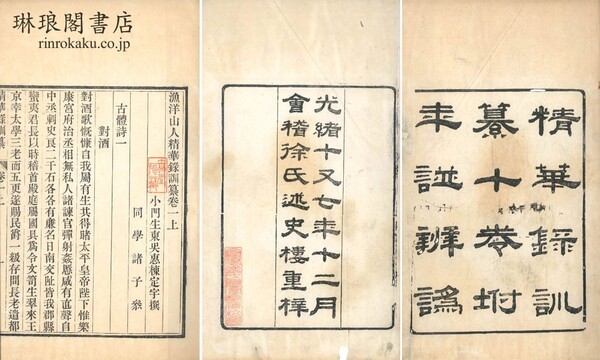 琳琅閣書店
rinrokaku.co.jp
精華錄訓
纂十卷坿
年譜辨譌
光緒十又七年十二月
會稽徐氏述史樓重梓
漁洋山人精華錄訓纂卷一上
小門生東吳惠棟定宇撰
同學諸子參
古體詩一
對酒
對酒歌慨慷自我屬有生其得睹太平皇帝陛下惟樂
康宮府治丞相無私人諸諫官彈射姦慝咸有直聲自
中丞刺史良二千石各各有廉名日南交阯皆我郡縣
蠻夷君長以時稽首殿庭屬國具爲令文笥生翠來王
京幸太學三老而五更遂賜民爵一級存問長老遣都
精華錄訓纂 卷一上 一